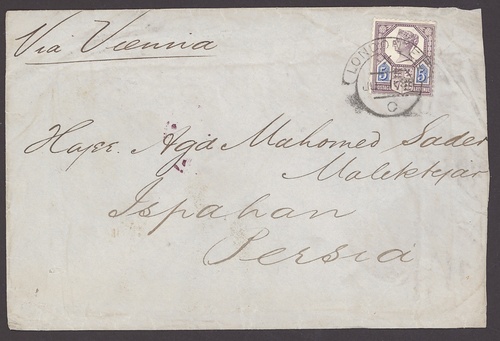 Via Vienna
LONDON
5 5
C
Hajee. Aga Mahomed Sader
Malektejar
Ispahan
Persia